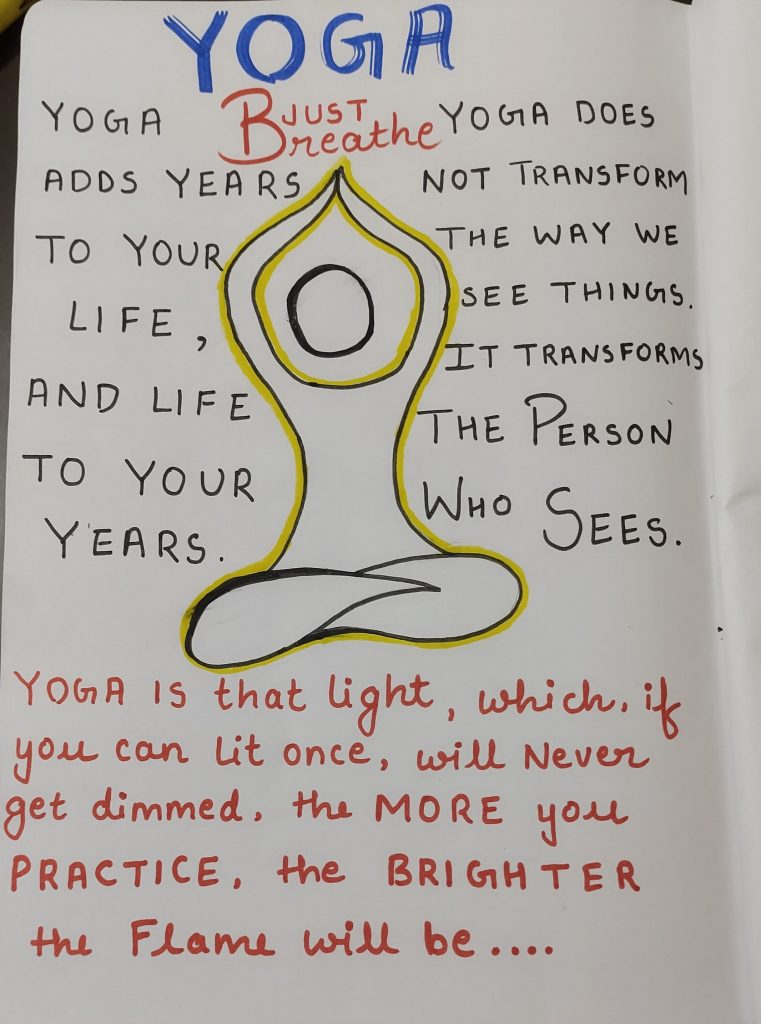 YOGA
JUST
Breathe
YOGA
ADDS YEARS
TO YOUR
LIFE,
AND LIFE
TO YOUR
YEARS.
YOGA DOES
NOT TRANSFORM
THE WAY WE
SEE THINGS.
IT TRANSFORMS
THE PERSON
WHO SEES.
YOGA IS that light, which, if
you can lit once, will Never
get dimmed. the MORE you
PRACTICE, the BRIGHTER
the Flame will be....